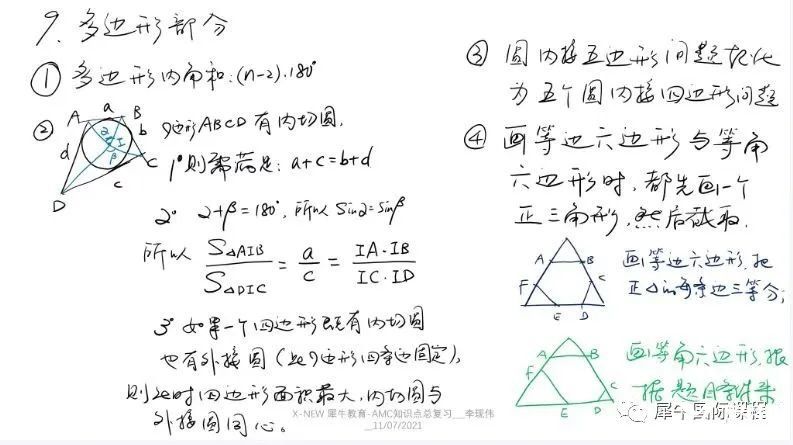 9、多边形部分
① 多边形内角和:(n-2)·180°
② 四边形ABCD有内切圆,
A a B
b
d
C
c
D
α I
β
1° 则需满足: a+c=b+d
2° α+β=180°, 所以 sinα=sinβ
所以 S△AIB/S△DIC = a/c = IA·IB/IC·ID
3° 如果一个四边形既有内切圆
也有外接圆(此四边形四条边固定),
则此时四边形面积最大,内切圆与
外接圆同心。
③ 圆内接五边形问题转化
为五个圆内接四边形问题
④ 画等边六边形与等角
六边形时,都先画一个
正三角形,然后截取.
A B
F C
E D
画等边六边形,把
正△的每条边三等分;
A B
F
C
E D
画等角六边形,根
据题目条件来
X-NEW 犀牛教育-AMC知识点总复习__李现伟
__11/07/2021
犀牛国际课程